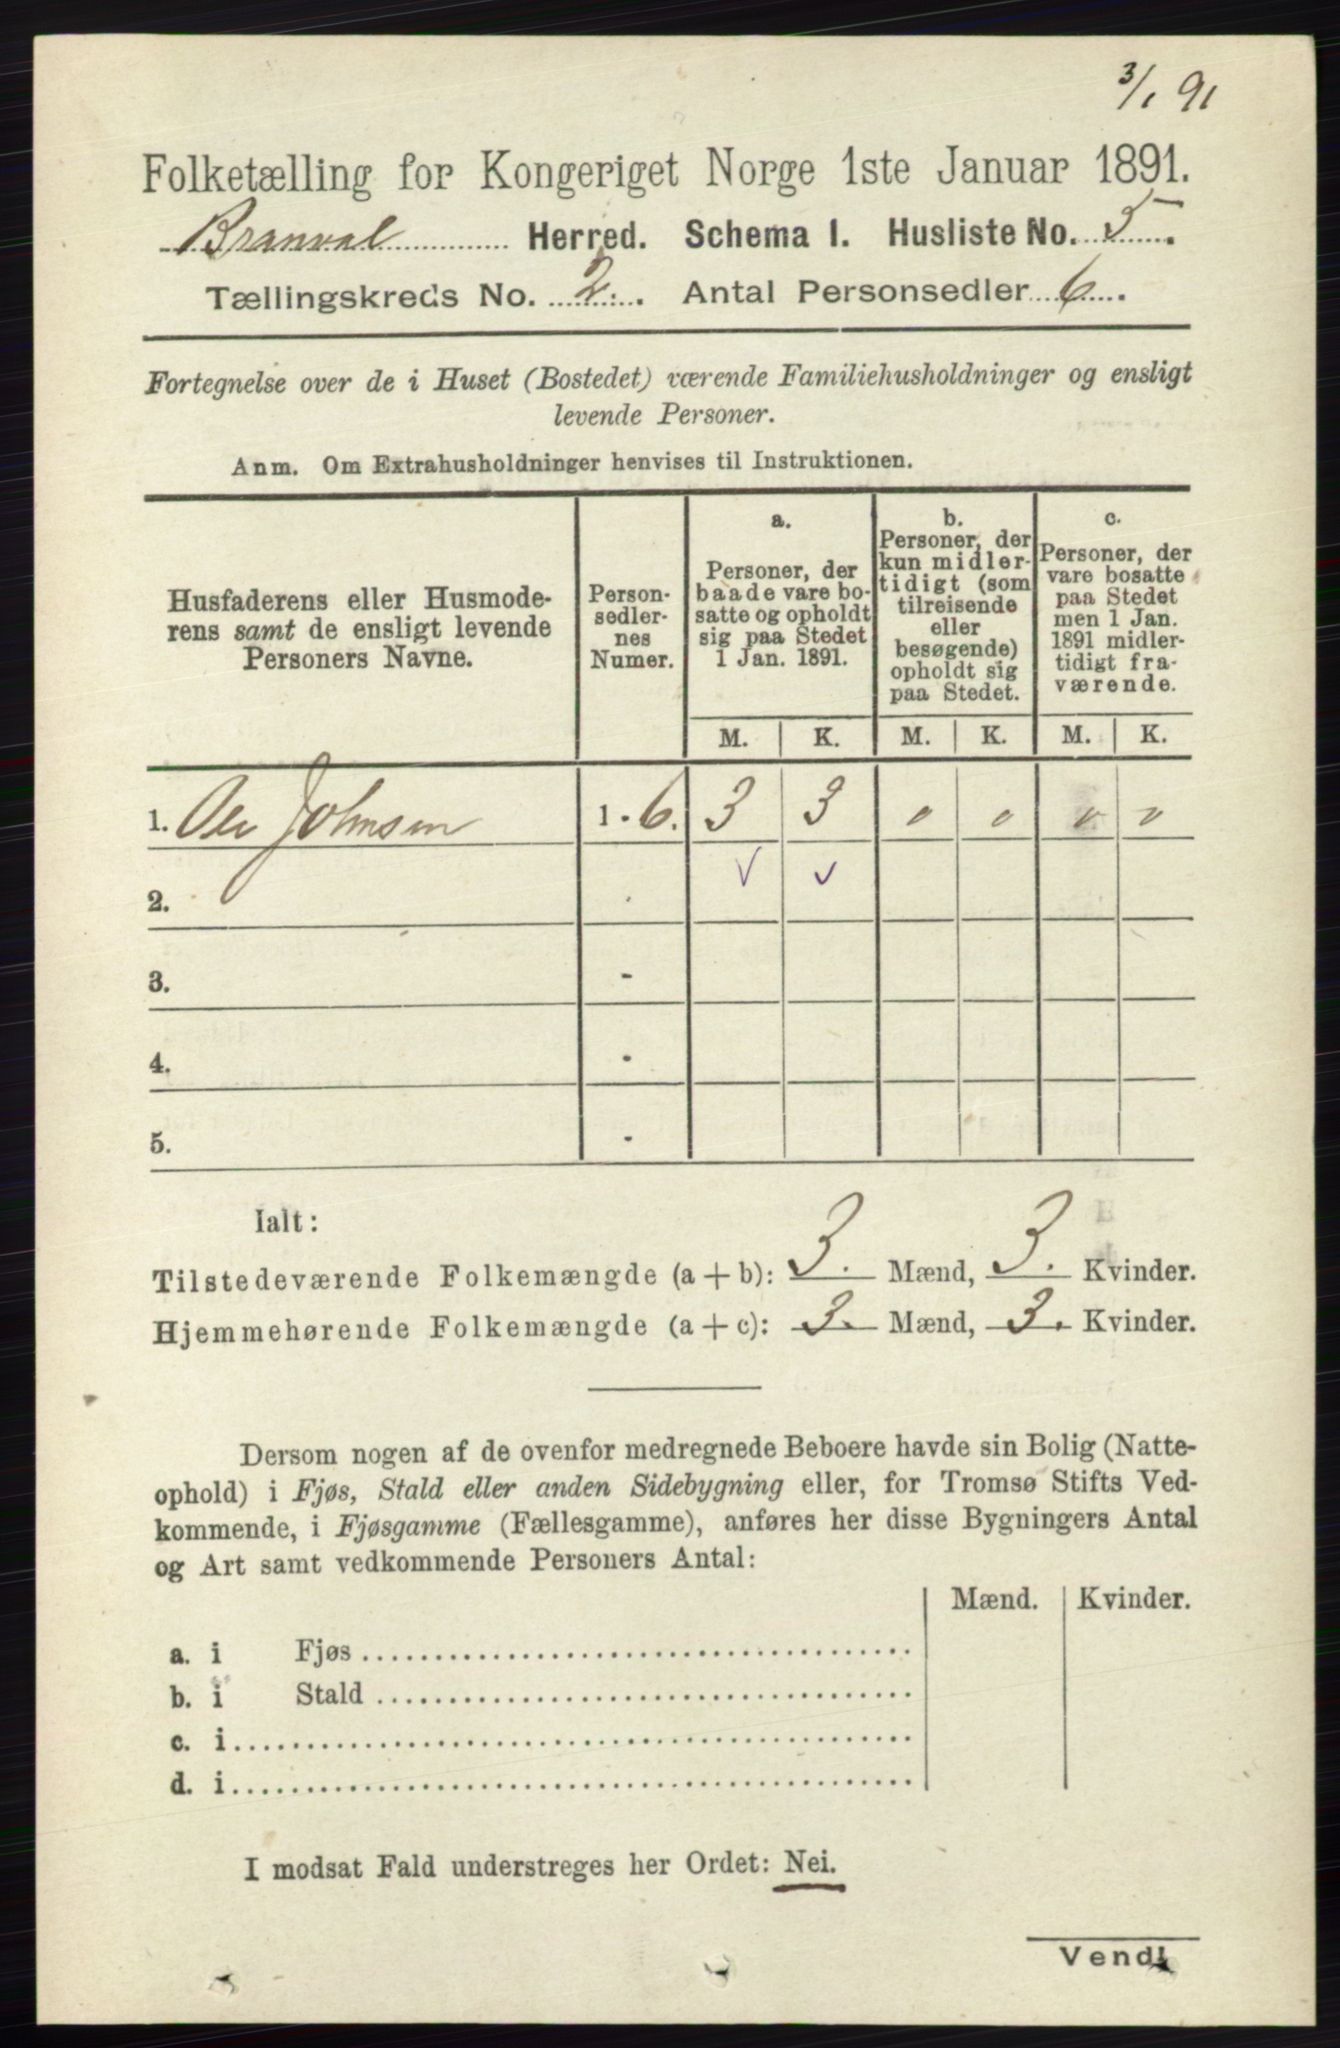 3/1 91
Folketælling for Kongeriget Norge 1ste Januar 1891.
Branval Herred. Schema I. Husliste No. 5.
Tællingskreds No. 2. Antal Personsedler 6.
Fortegnelse over de i Huset (Bostedet) værende Familiehusholdninger og ensligt
levende Personer.
Anm. Om Extrahusholdninger henvises til Instruktionen.
Husfaderens eller Husmode-
rens samt de ensligt levende
Personers Navne.
Person-
sedler-
nes
Numer.
a.
Personer, der
baade vare bo-
satte og opholdt
sig paa Stedet
1 Jan. 1891.
b.
Personer, der
kun midler-
tidigt (som
tilreisende
eller
besøgende)
opholdt sig
paa Stedet.
c.
Personer, der
vare bosatte
paa Stedet
men 1 Jan.
1891 midler-
tidigt fra-
værende.
M. K. M. K. M. K.
1. Ole Johnsen 1 - 6. 3 3 0 0 0 0
2. -
3. -
4. -
5. -
Ialt:
Tilstedeværende Folkemængde (a + b): 3. Mænd, 3. Kvinder.
Hjemmehørende Folkemængde (a + c): 3. Mænd, 3. Kvinder.
Dersom nogen af de ovenfor medregnede Beboere havde sin Bolig (Natte-
ophold) i Fjøs, Stald eller anden Sidebygning eller, for Tromsø Stifts Ved-
kommende, i Fjøsgamme (Fællesgamme), anføres her disse Bygningers Antal
og Art samt vedkommende Personers Antal:
Mænd. Kvinder.
a. i Fjøs
b. i Stald
c. i
d. i
I modsat Fald understreges her Ordet: Nei.
Vend!